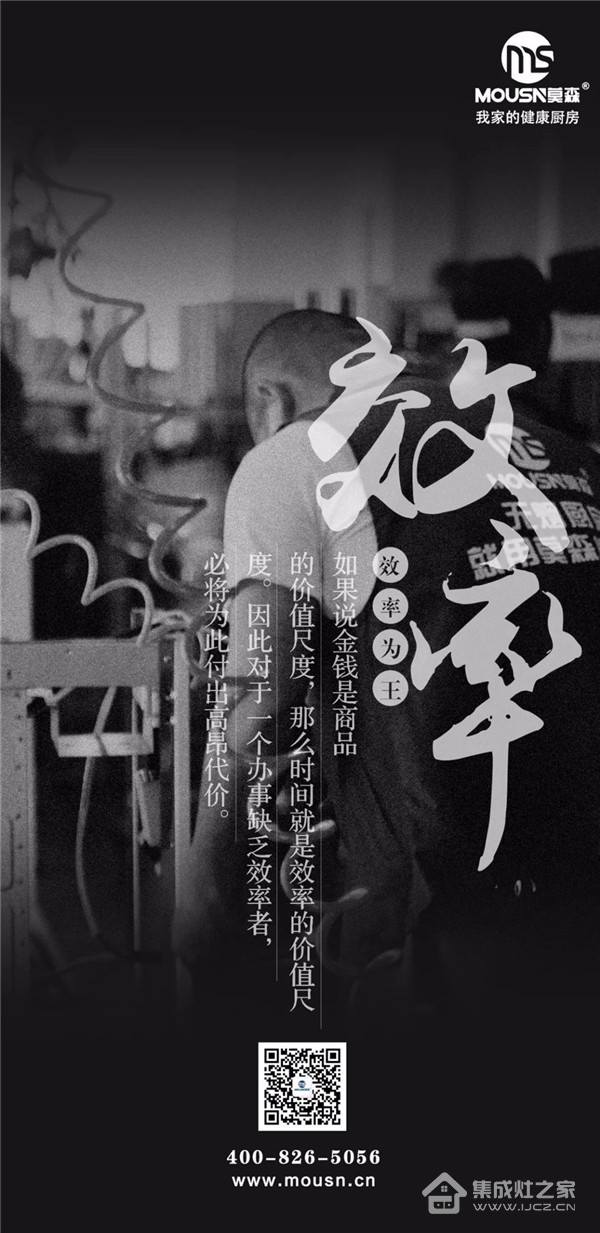 ms
MOUSN莫森®
我家的健康厨房
效率
ms
MOUSN莫森
无烟厨房
就用莫森
效率为王
如果说金钱是商品
的价值尺度，那么时间就是效率的价值尺
度。因此对于一个办事缺乏效率者，
必将为此付出高昂代价。
400-826-5056
www.mousn.cn
集成灶之家
WWW.IJCZ.CN